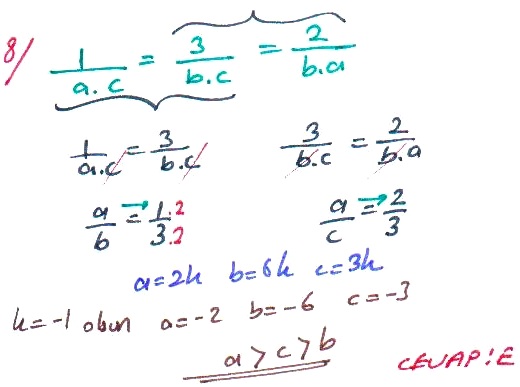 8/ 1/(a.c) = 3/(b.c) = 2/(b.a)
1/(a.c) = 3/(b.c) 3/(b.c) = 2/(b.a)
a/b = 1.2/3.2 a/c = 2/3
a=2k b=6k c=3k
k=-1 olsun a=-2 b=-6 c=-3
a > c > b
CEVAP:E